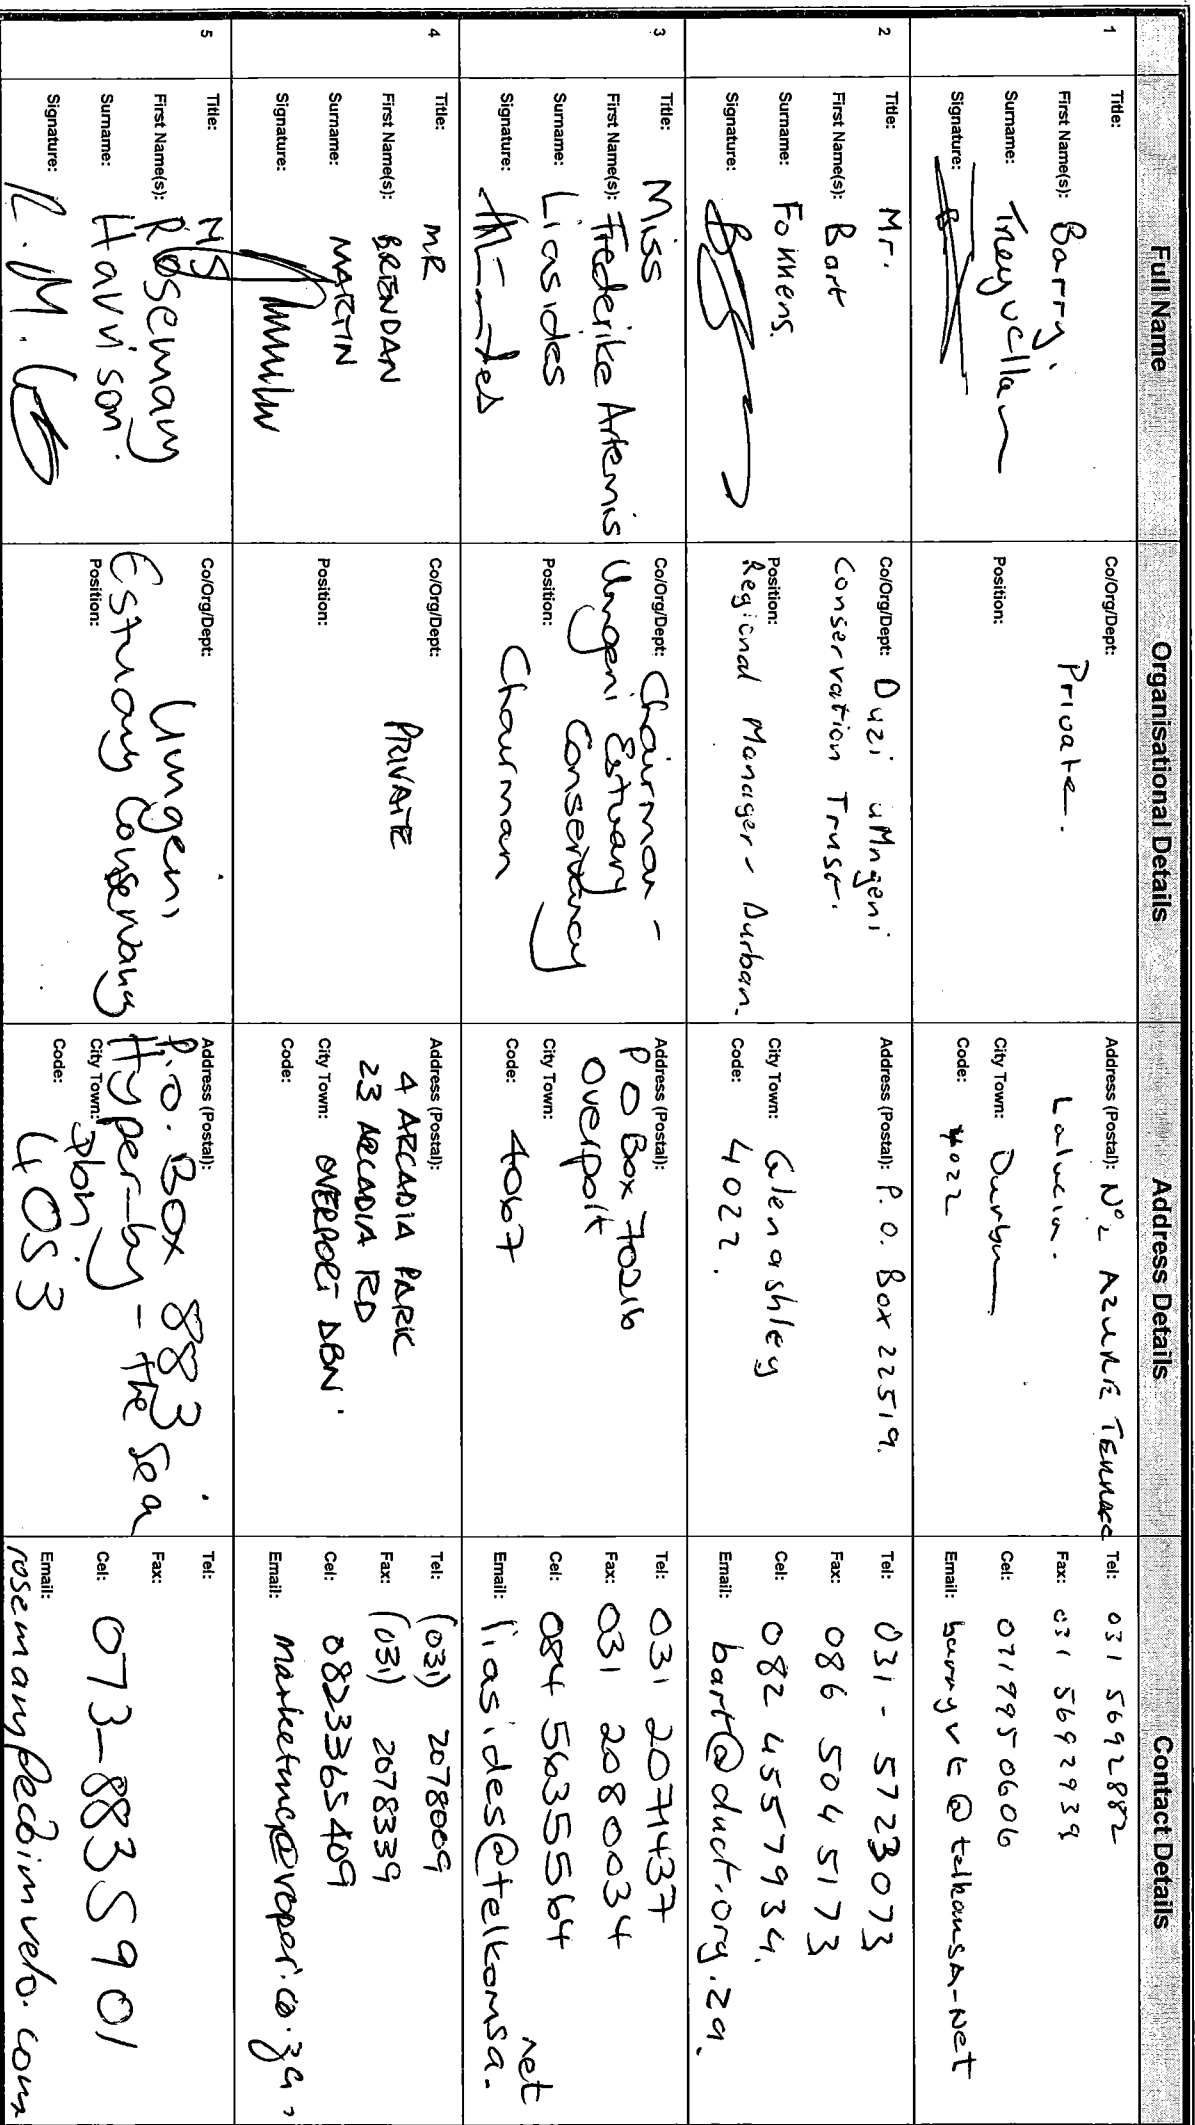 Full Name Organisational Details Address Details Contact Details
1
Title:
First Name(s): Barry.
Surname:
Signature:
Co/Org/Dept:
Private.
Position:
Address (Postal): No 2 AZURE TERRACE
Lalucia.
City Town: Durban
Code: 4022
Tel: 031 5692882
Fax: 031 5692939
Cel: 0719950606
Email:
2
Title: Mr.
First Name(s): Bart
Surname: Fokkens.
Signature:
Co/Org/Dept: Duzi uMngeni
Conservation Trust.
Position:
Regional Manager - Durban.
Address (Postal): P.O. Box 22519.
City Town: Glenashley
Code: 4022.
Tel: 031 - 5723073
Fax: 086 504 5173
Cel: 082 4557934.
Email: bart@duct.org.za.
3
Title: Miss
First Name(s): Frederike Artemis
Surname: Liasides
Signature:
Co/Org/Dept: Chairman -
Umgeni Estuary
Conservancy
Position: Chairman
Address (Postal):
P O Box 70216
Overport
City Town:
Code: 4067
Tel: 031 2071437
Fax: 031 2080034
Cel: 084 5635564
Email: liasides@telkomsa.
net
4
Title: MR
First Name(s): BRENDAN
Surname: MARTIN
Signature:
Co/Org/Dept:
PRIVATE
Position:
Address (Postal):
4 ARCADIA PARK
23 ARCADIA RD
City Town: OVERPORT DBN.
Code:
Tel: (031) 2078009
Fax: (031) 2078339
Cel: 0823365409
Email:
5
Title: MS
First Name(s): Rosemary
Surname: Harrison.
Signature: R. M.
Co/Org/Dept:
Umgeni
Estuary Conservancy
Position:
Address (Postal):
P.O. Box 883
Hyper-by-the Sea
City Town: Dbn
Code: 4053
Tel:
Fax:
Cel: 073-8835901
Email: